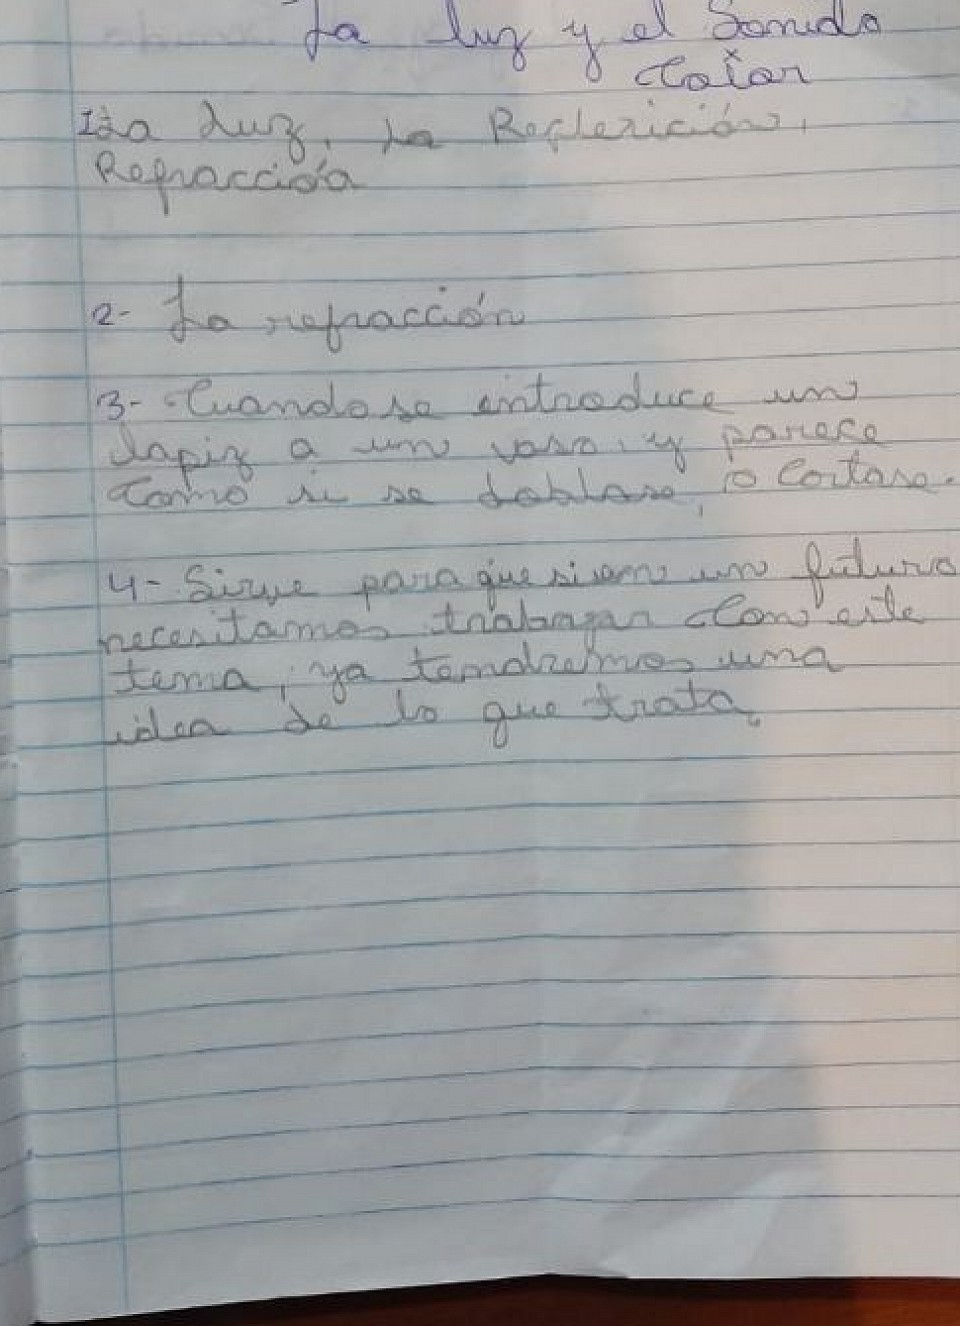 La luz y el Sonido
1La Luz, La Reflexición,
Refracción
2- La refracción
3- Cuando se introduce un
lapiz a un vaso, y parece
como si se doblase, o Cortase.
4- Sirve para que si en un futuro
necesitamos trabajar con este
tema, ya tendremos una
idea de lo que trata.